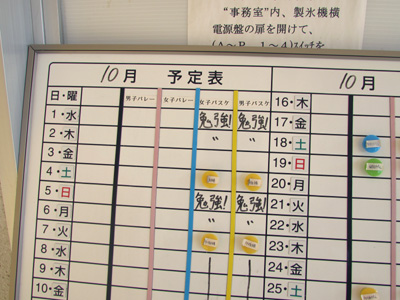 "事務室"内、製氷機横
電源盤の扉を開けて、
(A~P 1~4)スイッチを
10月 予定表
10月
日・曜 男子バレー 女子バレー 女子バスケ 男子バスケ
1・水 勉強! 勉強!
2・木 〃 〃
3・金
4・土
5・日 勉強! 勉強!
6・月 〃 〃
7・火
8・水
9・木
10・金
16・木
17・金
18・土
19・日
20・月
21・火
22・水
23・木
24・金
25・土